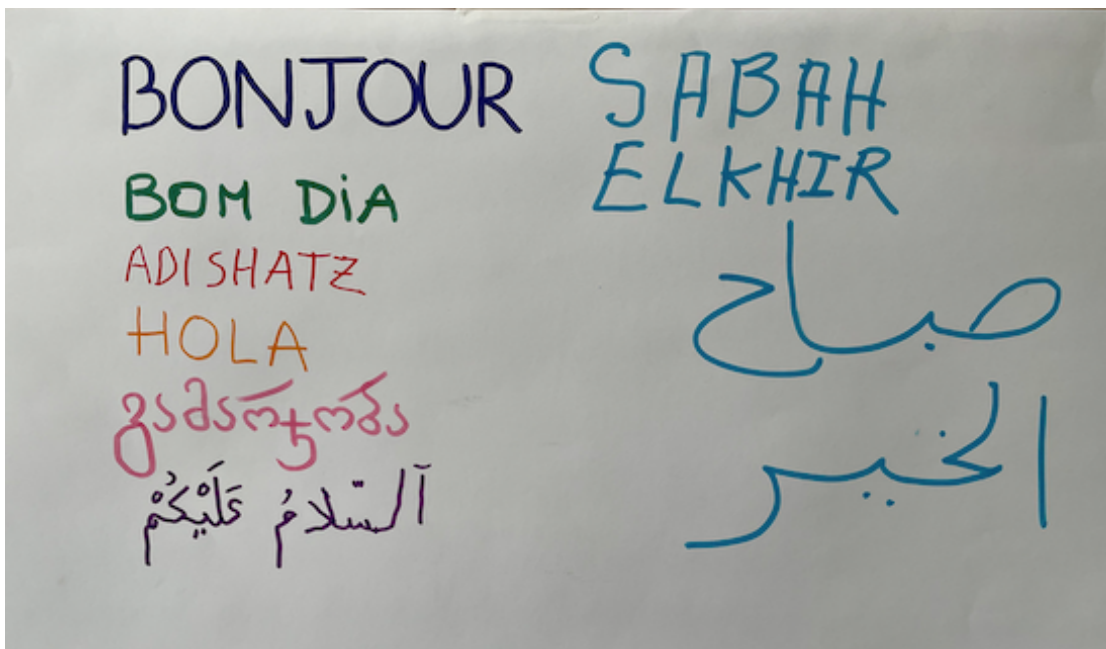 BONJOUR
BOM DiA
ADISHATZ
HOLA
გამარჯობა
آلسّلامُ عَلَيْكُمْ
SABAH
ELKHIR
صباح
الخير